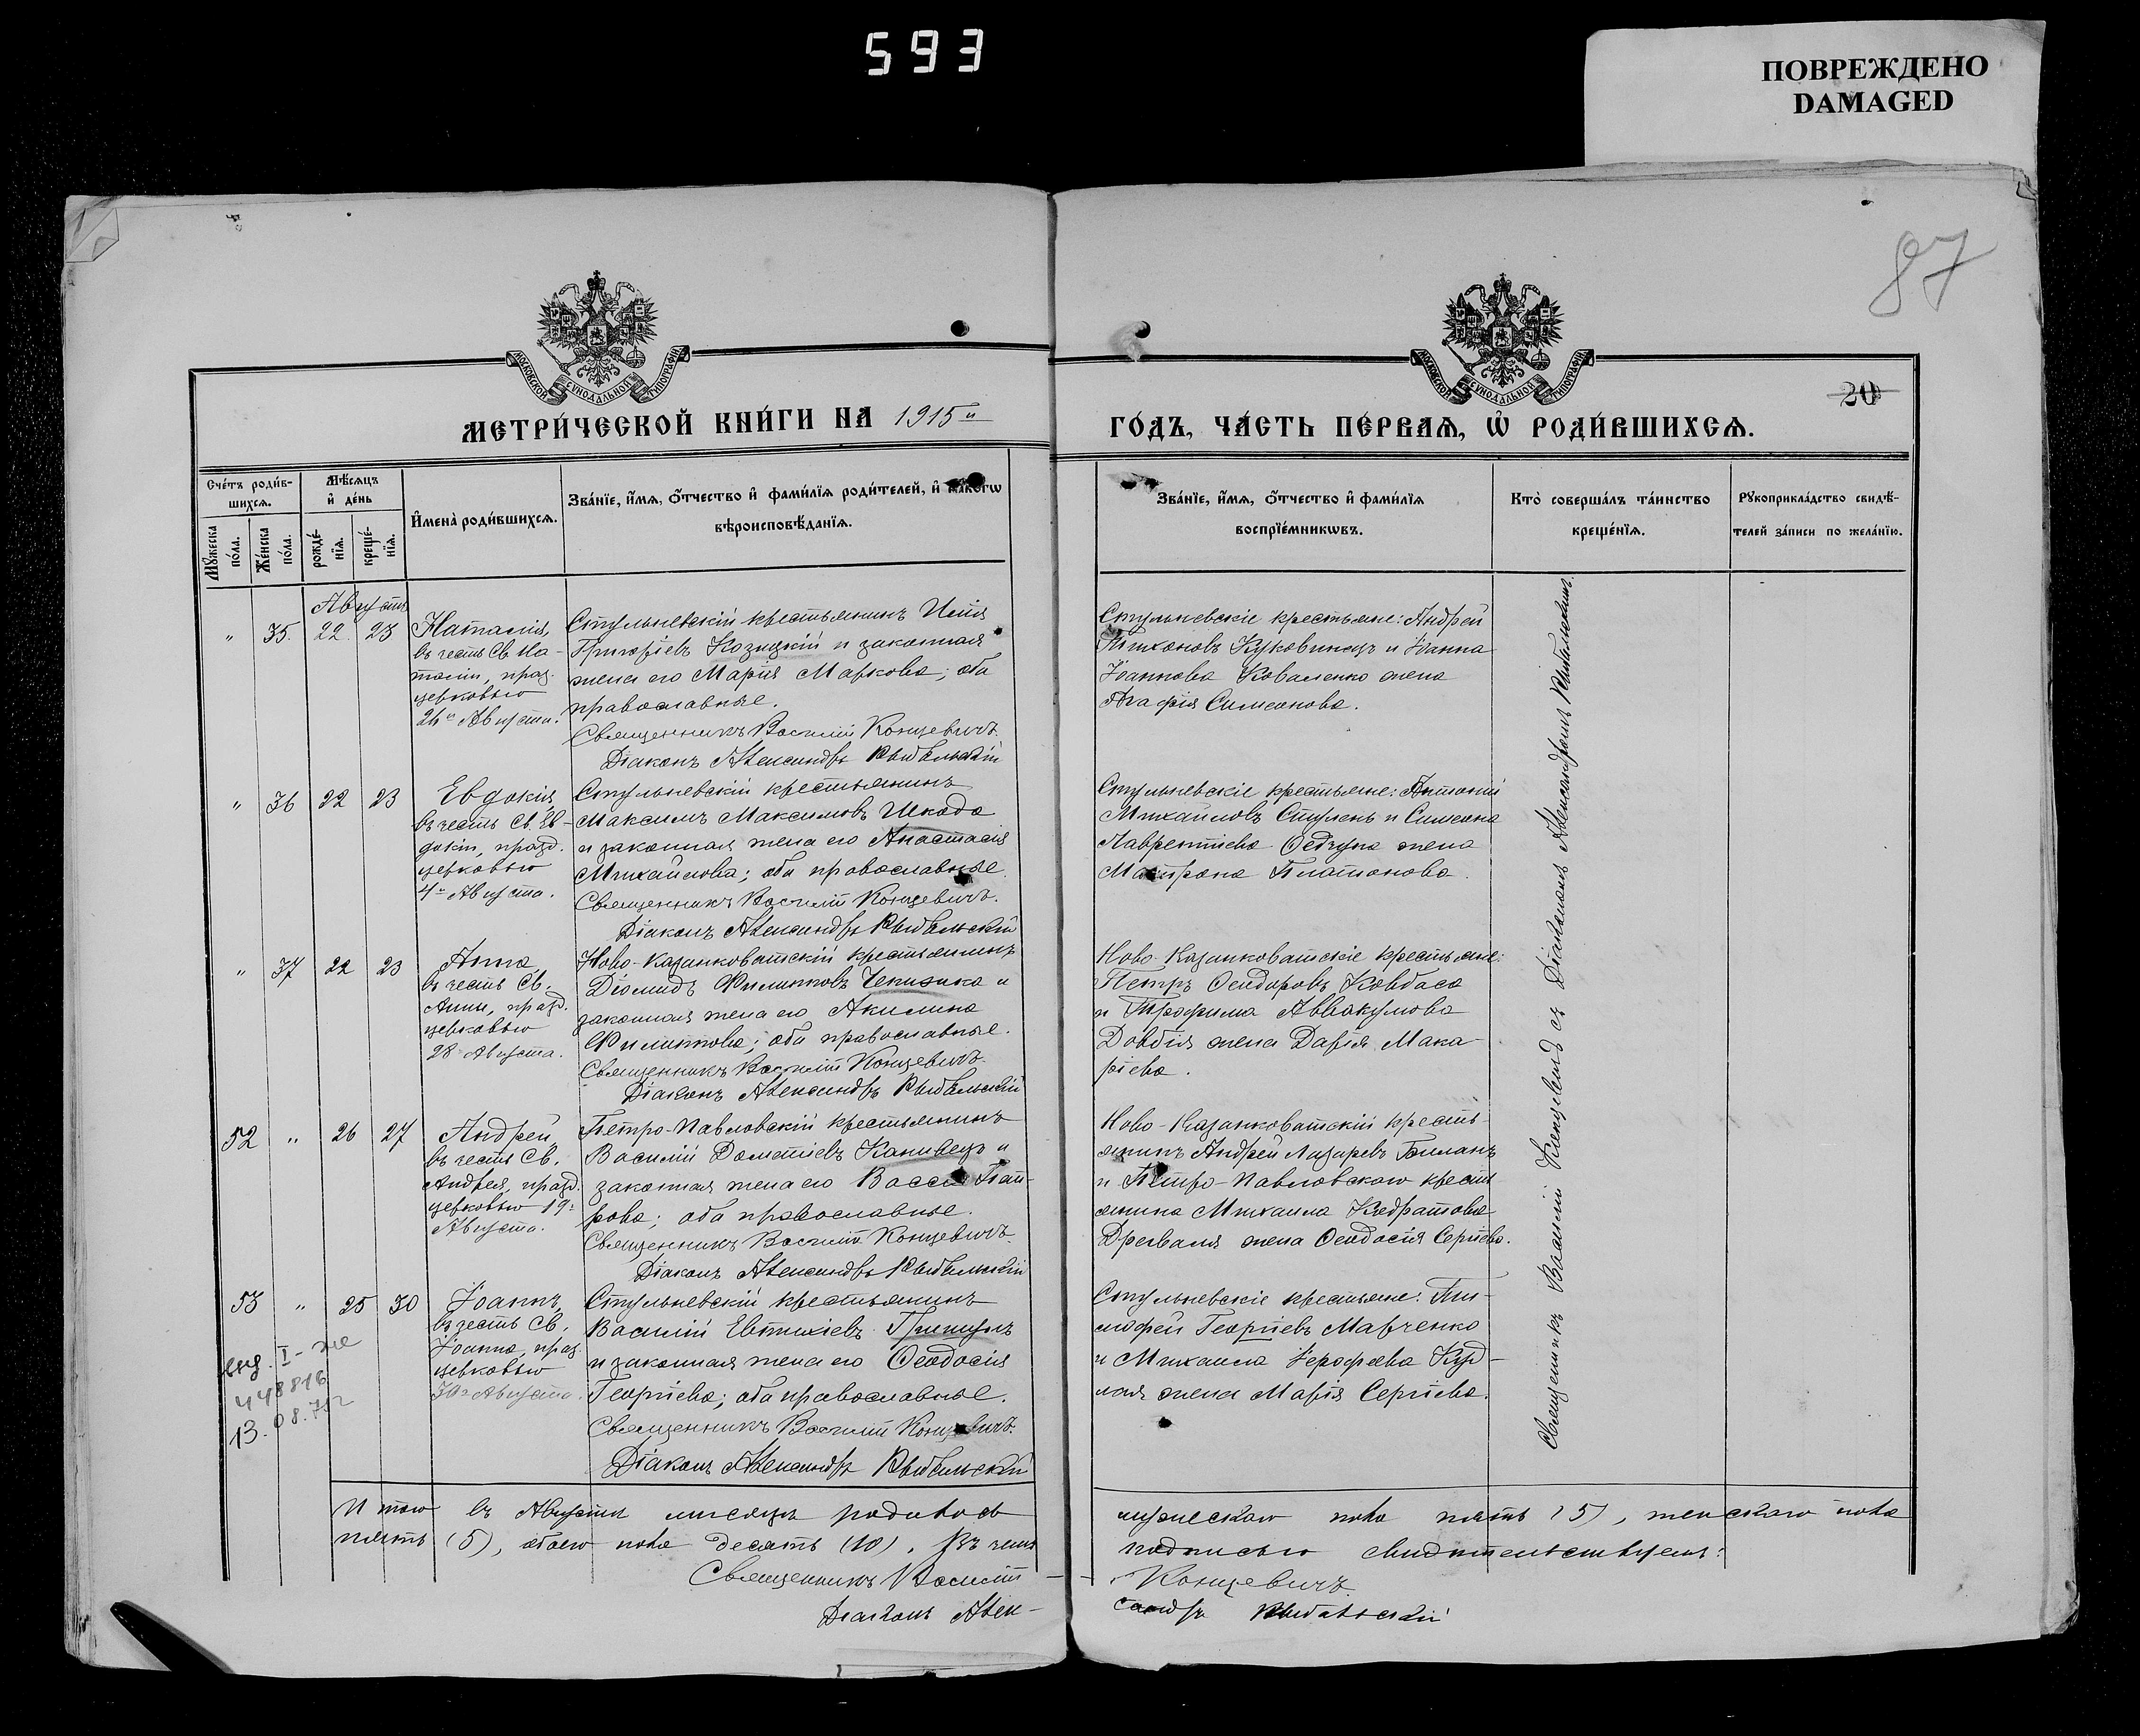 593
ПОВРЕЖДЕНО
DAMAGED
87
МОСКОВСКОЙ СѴНОДАЛЬНОЙ ТИПОГРАФІИ
МОСКОВСКОЙ СѴНОДАЛЬНОЙ ТИПОГРАФІИ
20
МЕТРИ́ЧЕСКОЙ КНИ́ГИ НА 1915й
ГО́ДЪ, ЧА́СТЬ ПЕ́РВАѦ, Ѡ҆ РОДИ́ВШИХСѦ.
Сче́тъ роди́в-
шихсѧ.
Мѣ́сѧцъ
и҆ де́нь
Мꙋ́жеска по́ла.
Же́нска по́ла.
рожде́-
нїѧ.
креще́-
нїѧ.
И҆мена̀ роди́вшихсѧ.
Зва́нїе, и҆́мѧ, ѻ҆́тчество и҆ фами́лїѧ роди́телей, и҆ како́гѡ
вѣроисповѣ́данїѧ.
Зва́нїе, и҆́мѧ, ѻ҆́тчество и҆ фами́лїѧ
воспрїе́мникѡвъ.
Кто̀ соверша́лъ та́инство
креще́нїѧ.
Рꙋкоприкла́дство свидѣ́-
телей за́писи по жела́нїю.
Августъ
" 35. 22. 23
Наталія,
въ честь Св. На-
таліи, праз.
церковью
26го Августа.
Стульневскій крестьянинъ Илія
Григоріевъ Козицкій и законная
жена его Марія Маркова; оба
православные.
Священникъ Василій Концевичъ.
Діаконъ Александръ
Стульневскіе крестьяне: Андрей
Тихоновъ Куковинецъ и Іоанна
Іоаннова Коваленко жена
Агафія Симеонова.
" 36 22 23
Евдокія,
въ честь Св. Ев-
докіи, празд.
церковью
4го Августа.
Стульневскій крестьянинъ
Максимъ Максимовъ Шкода
и законная жена его Анастасія
Михайлова; оба православные.
Священникъ Василій Концевичъ.
Діаконъ Александръ
Стульневскіе крестьяне: Антоній
Михайловъ Стулень и Симеона
Лаврентіева Федчуна жена
Матрона Платонова.
" 37 22 23
Анна
въ честь Св.
Анны, празд.
церковью
28 Августа.
Ново-Казанковатскій крестьянинъ
Діомидъ Филипповъ Чепижка и
законная жена его Акилина
Филиппова; оба православные.
Священникъ Василій Концевичъ.
Діаконъ Александръ
Ново-Казанковатскіе крестьяне:
Петръ Ѳеодоровъ Ковбаса
и Трофима Аввакумова
Довбія жена Дарія Мака-
ріева.
52 " 26 27
Андрей,
въ честь Св.
Андрея, празд.
церковью 19го
Августа.
Петро-Павловскій крестьянинъ
Василій Дометіевъ Канивецъ и
законная жена его Васса
рова; оба православные.
Священникъ Василій Концевичъ.
Діаконъ Александръ
Ново-Казанковатскій кресть-
янинъ Андрей Лазаревъ Биланъ
и Петро-Павловскаго кресть
янина Михаила Кодратова
Древаля жена Ѳеодосія Сергіева.
53 " 25 30
Іоаннъ,
въ честь Св.
Іоанна, праз
церковью
30го Августа.
Стульневскій крестьянинъ
Василій Евтихіевъ Грищукъ
и законная жена его Ѳеодосія
Георгіева; оба православные.
Священникъ Василій Концевичъ.
Діаконъ Александръ
Стульневскіе крестьяне: Ти-
моѳей Георгіевъ Марченко
и Михаила Іероѳеева
жена Марія Сергіева.
I-же
448816
13.08.
Священникъ Василій Концевичъ съ Діакономъ Александромъ
Итого въ Августѣ мѣсяцѣ родилось
мужескаго пола пять (5), женскаго пола
пять (5), обоего пола десять (10). Въ чемъ
подписью свидѣтельствуемъ:
Священникъ Василій
Концевичъ.
Діаконъ Алек-
сандръ